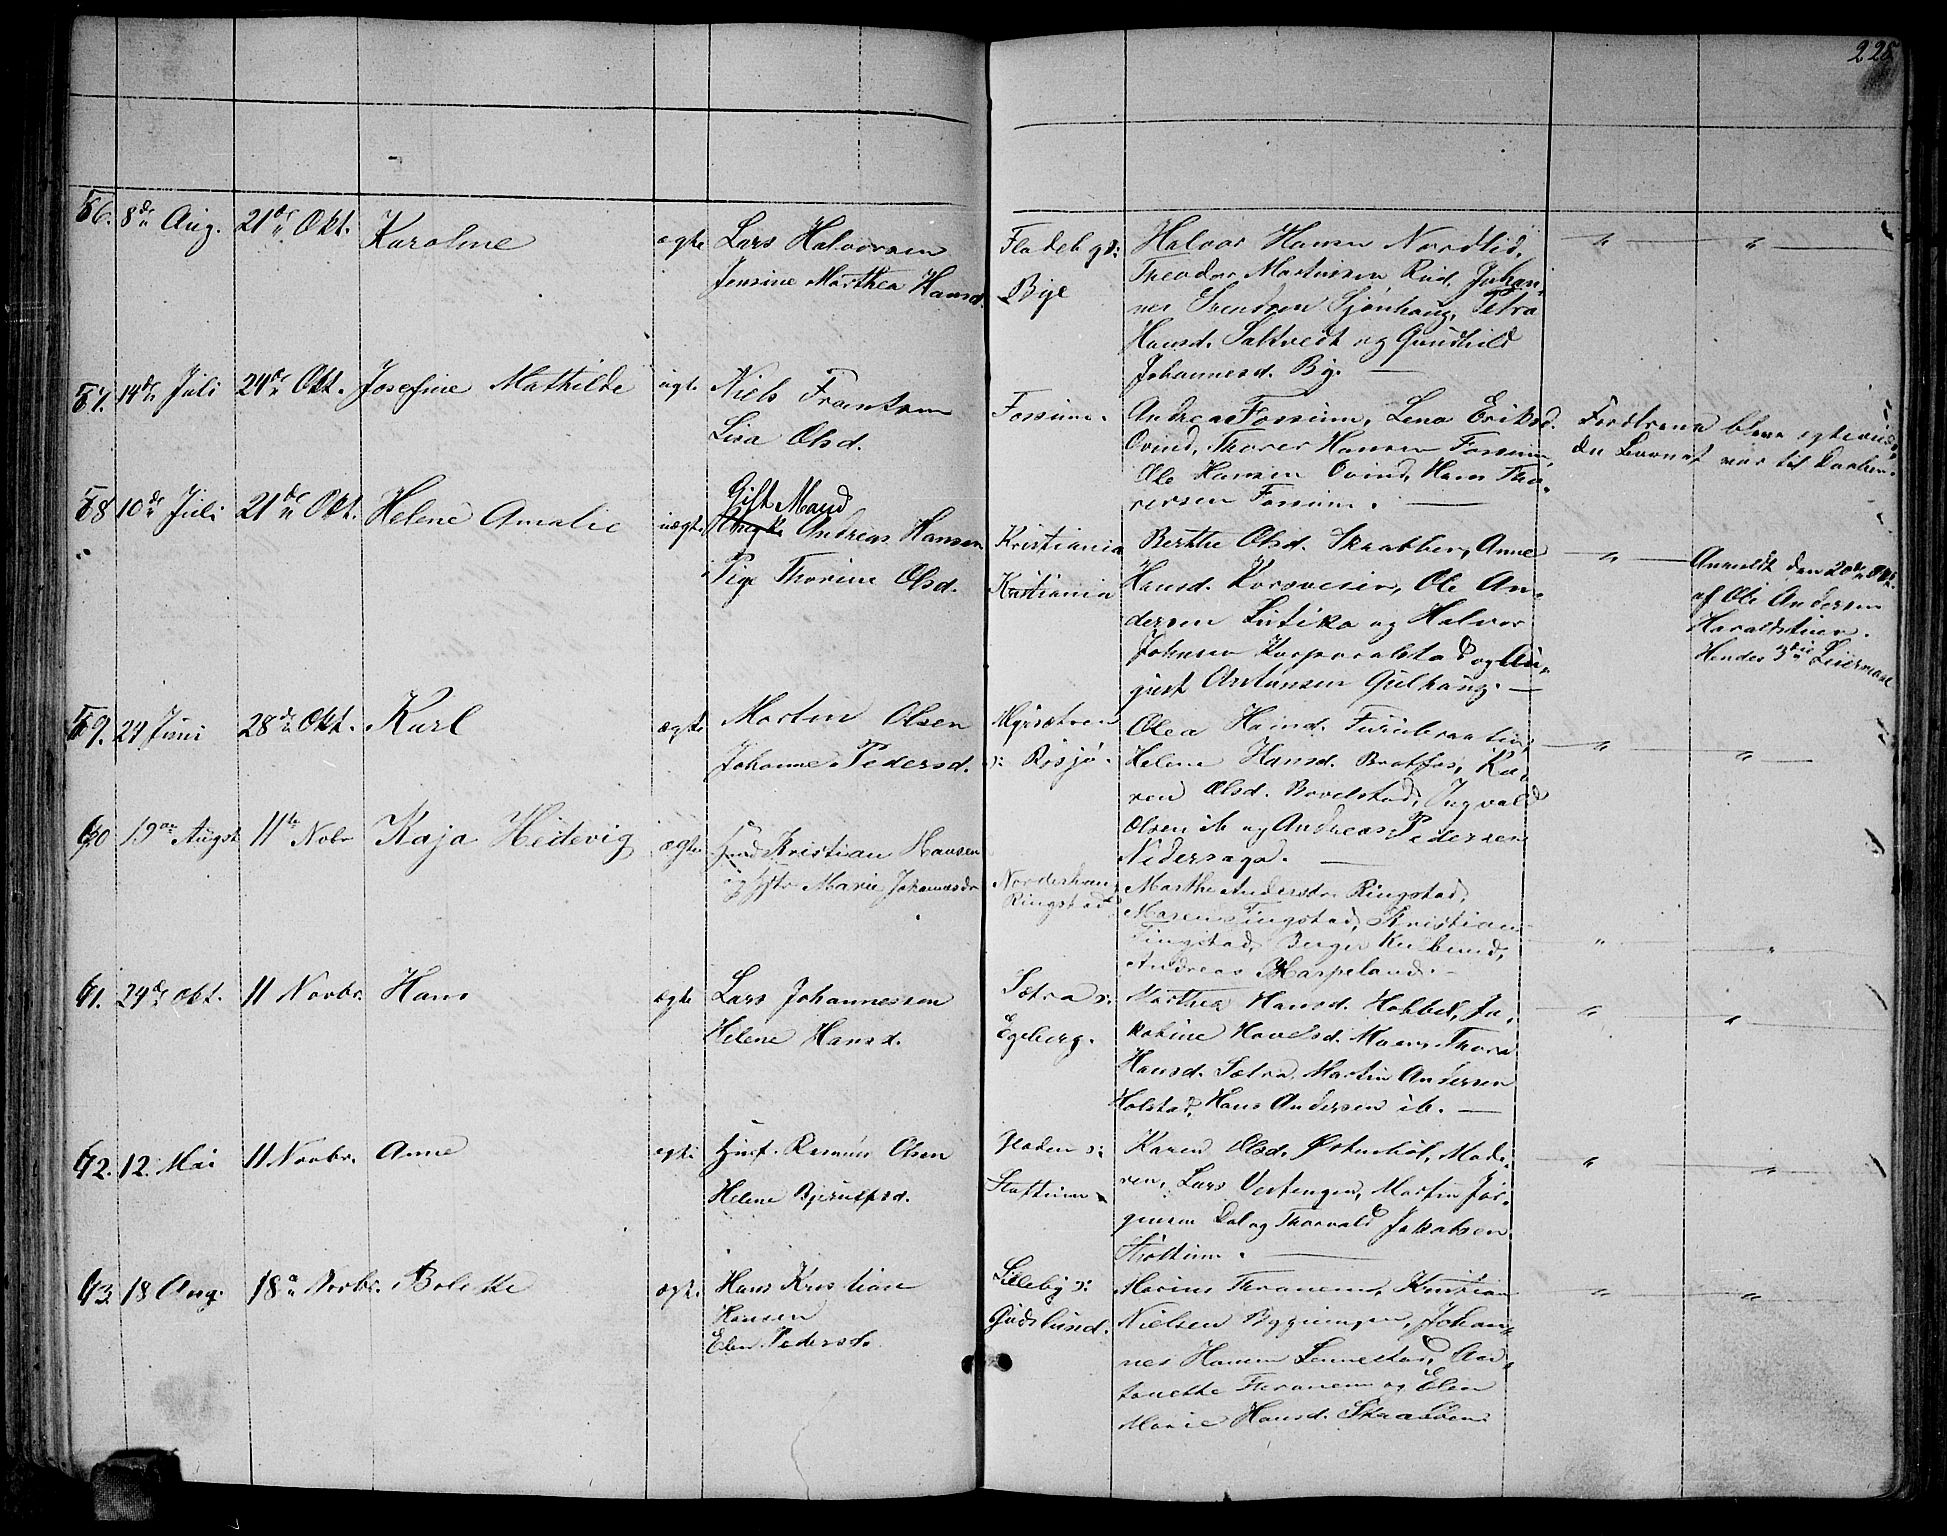 225
56. 8de Aug. 21de Okt. Karoline ægte Lars Halvorsen
Jensine Marthea Hansd.
Fladeby s:
Bye
Halvor Hansen Nordlid,
Theodor Martinsen Rud, Johan-
nes Svendsen Sjønhaug, Petra
Hansd. Saltvedt og Gundhild
Johannesd. By.
" "
57. 14de Juli 24de Okt. Josefine Mathilde ægte Niels Frantsen
Lisa Olsd.
Fossum.
Andreas Fossum, Lena Eriksd.
Ovind, Thorer Hansen Fossum,
Ole Hansen Ovind, Hans Tho-
rersen Fossum.
Forældrene bleve ægteviede
da Barnet var til Daaben.
58 10de Juli 21de Okt. Helene Amalie uægte Gift Mand
Andreas Hansen
Pige Thorine Olsd.
Kristiania
Kristiania
Berthe Olsd. Skrabber, Anne
Hansd. Korsveien, Ole An-
dersen Lutika og Halvor
Johnsen Korporalstad og Au-
gust Antonsen Gulhaug.
"
Anmeldt den 20de Okt.
af Ole Andersen
Haraldstuen.
Hendes 3die Leiermaal
59. 24 Juni 28de Okt. Karl ægte Martin Olsen
Johanne Pedersd.
Myrsætren
s: Rösjö.
Olea Hansd. Furubraaten,
Helene Hansd. Bratfos, Ka-
ren Olsd. Bovelstad, Ingvald
Olsen ib og Andreas Pedersen
Nedersaga.
" "
60 19de Augst 11te Nobr Kaja Hedevig ægte Husmd Kristian Hansen
og Hstr Marie Johannesdr
Norderhaug
Ringstad
Marthe Andersdr Ringstad,
Maren Tingstad, Kristian
Tingstad, Berger Kulbund,
Andreas Harpeland.
" "
61. 24de Okt. 11 Novbr. Hans ægte Lars Johannessen
Helene Hansd.
Sætra s:
Egeberg.
Marthea Hansd. Hobbel, Ja-
kobine Hovelsd. Moen, Thora
Hansd. Sætra, Martin Andersen
Holstad, Hans Andersen ib.
" "
62. 12. Mai 11 Novbr. Anne ægte Husf. Rasmus Olsen
Helene Bjørnulfsd.
Fladen s:
Slottum
Karen Olsd. Østenbøl, Made-
ren, Lars Vestengen, Martin Jør-
gensen Dal og Thorvald Jakobsen
Slottum.
" "
63. 18 Aug. 18de Novbr. Bolette ægte Hans Kristian
Hansen
Elen Pedersd.
Lilleby s:
Gudslund.
Marius Thranem, Kristian
Nielsen Bygningen, Johan-
nes Hansen Lennestad, An-
tonette Thranem og Elen
Marie Hansd. Skaaden
" "